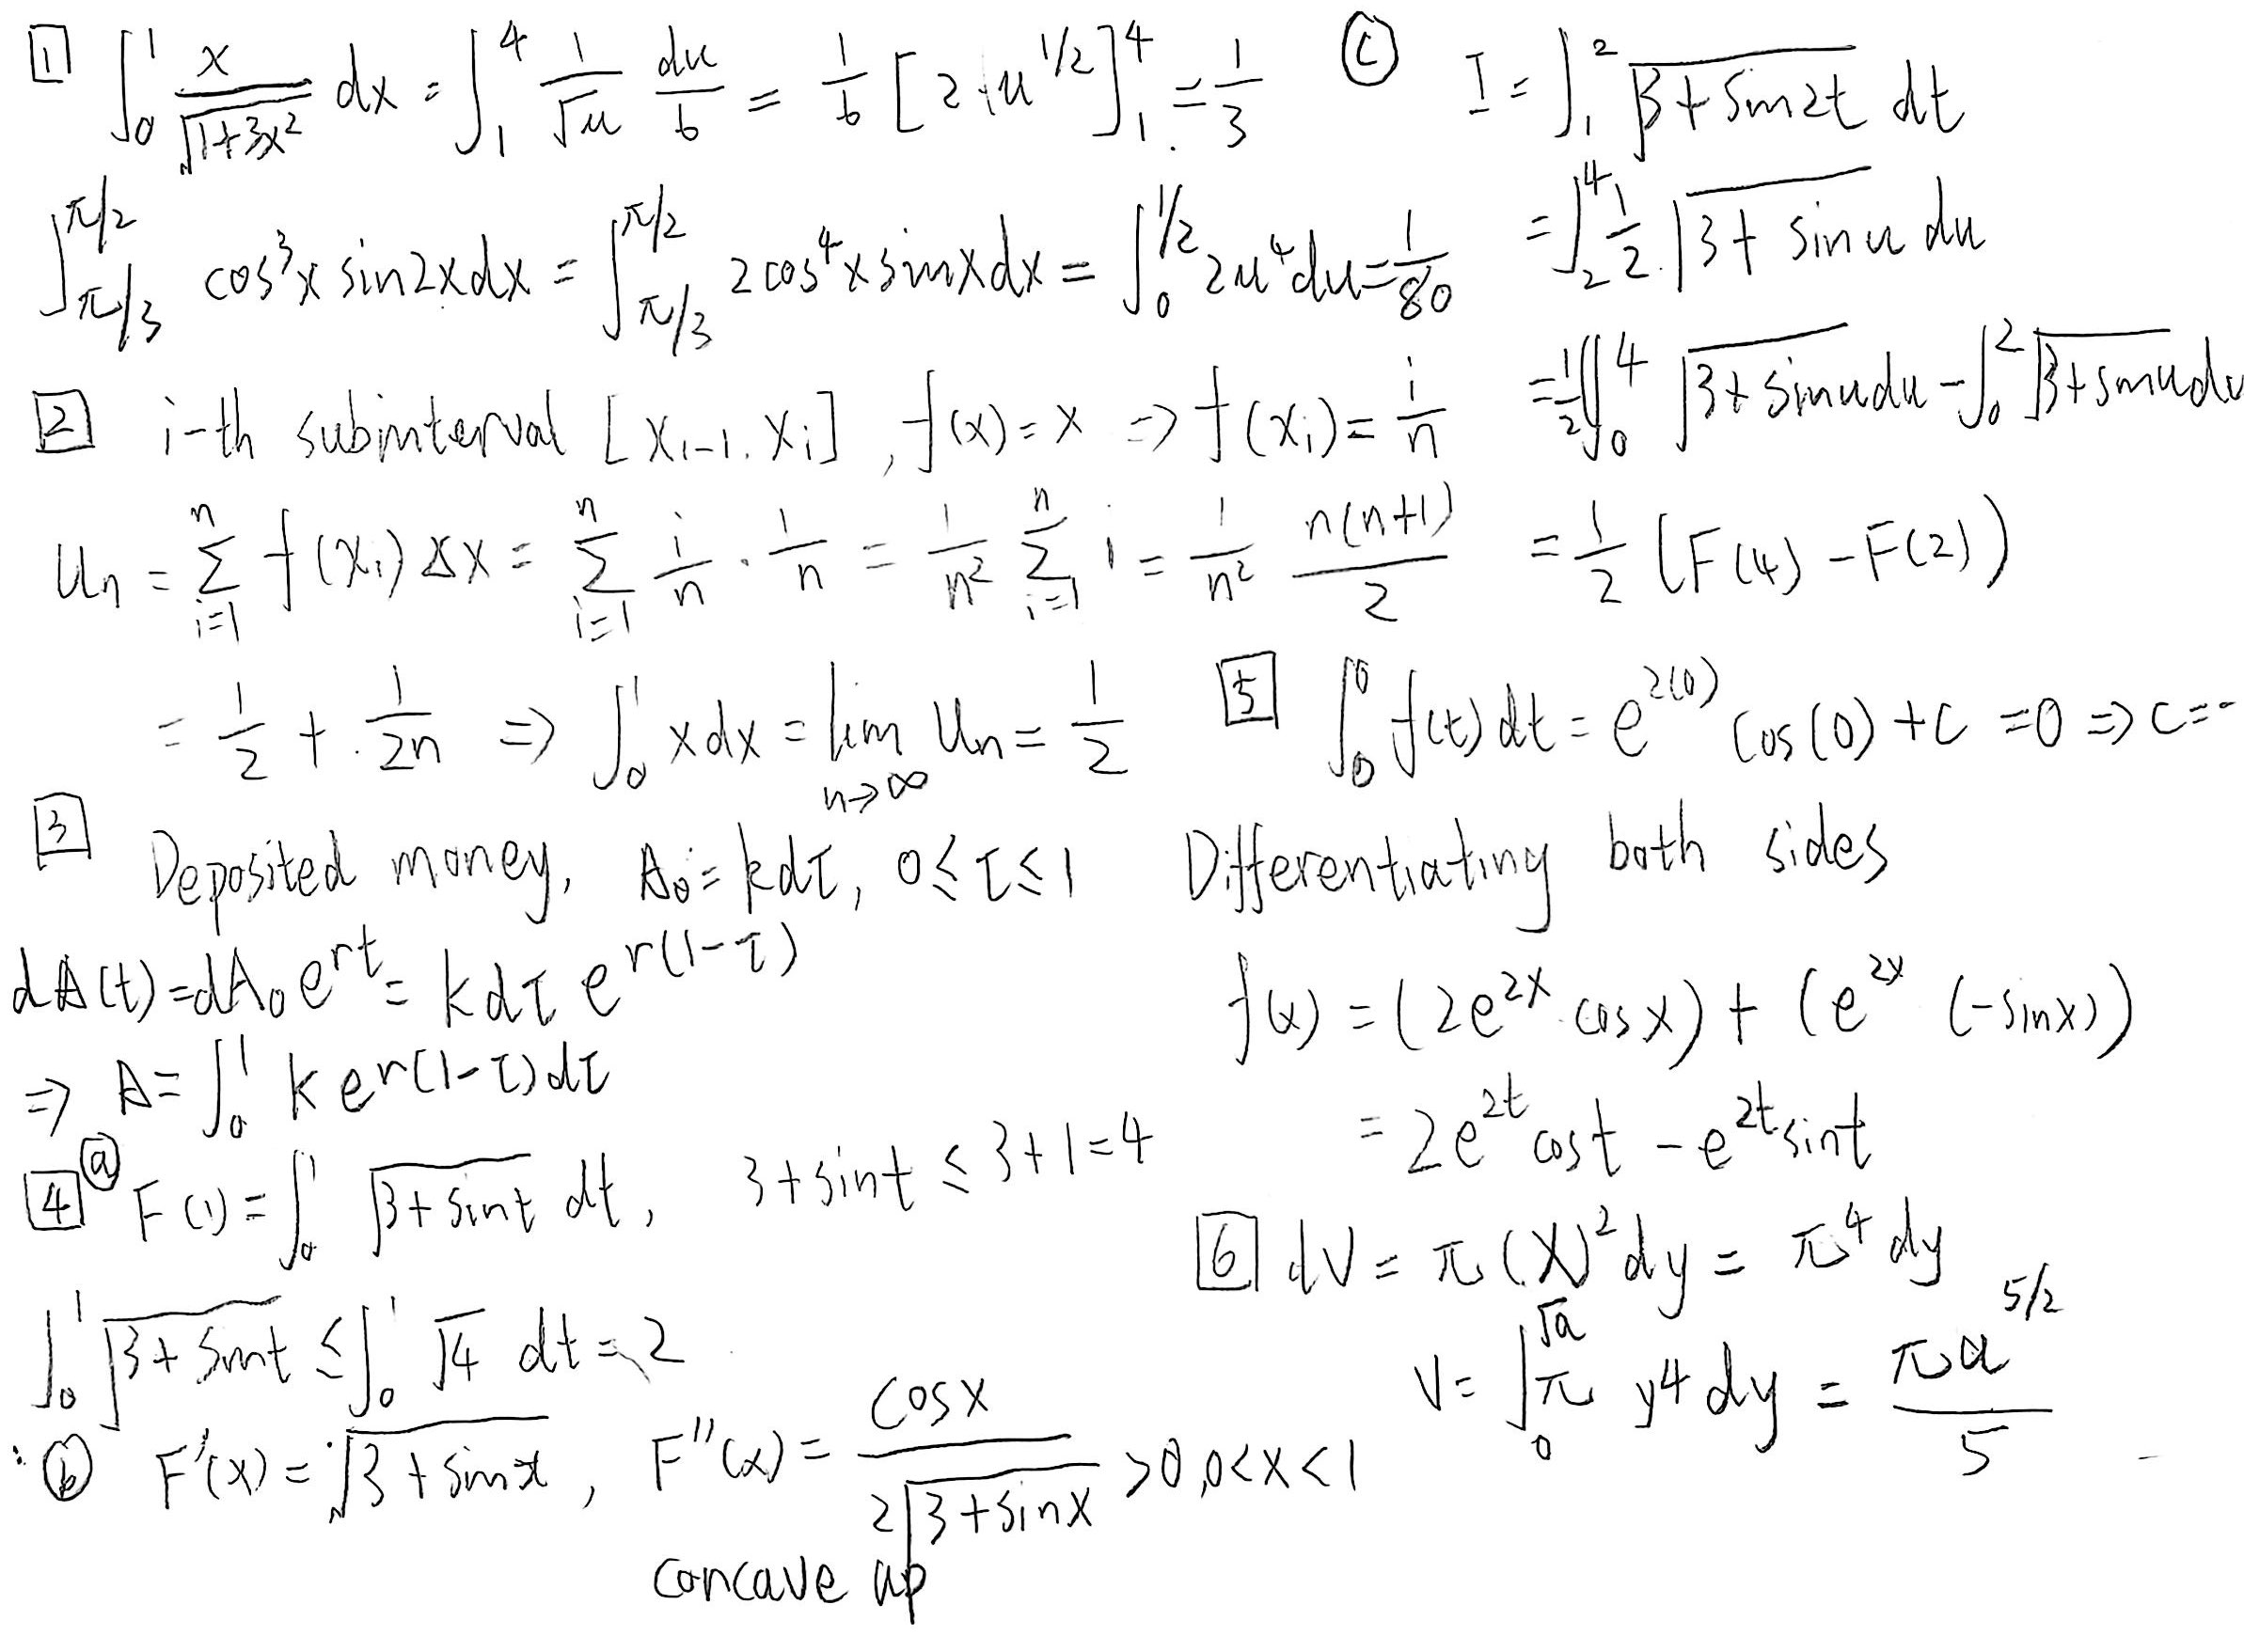 [1] ∫_0^1 x/√(1+3x²) dx = ∫_1^4 1/√u du/6 = 1/6 [2·u^{1/2}]_1^4 = 1/3
∫_{π/3}^{π/2} cos³x sin2x dx = ∫_{π/3}^{π/2} 2cos⁴x sinx dx = ∫_0^{1/2} 2u⁴du = 1/80
[2] i-th subinterval [x_{i-1}, x_i], f(x) = x ⇒ f(x_i) = i/n
U_n = Σ_{i=1}^n f(x_i) Δx = Σ_{i=1}^n i/n · 1/n = 1/n² Σ_{i=1}^n i = 1/n² n(n+1)/2
= 1/2 + 1/2n ⇒ ∫_0^1 x dx = lim_{n→∞} U_n = 1/2
[3] Deposited money, A_0 = kdτ, 0 ≤ τ ≤ 1
dA(t) = dA_0 e^{rt} = kdτ e^{r(1-τ)}
⇒ A = ∫_0^1 k e^{r(1-τ)} dτ
[4] (a) F(1) = ∫_0^1 √(3+sint) dt, 3+sint ≤ 3+1 = 4
∫_0^1 √(3+sint) ≤ ∫_0^1 √4 dt = 2
(b) F'(x) = √(3+sinx), F''(x) = cosx/(2√(3+sinx)) > 0, 0<x<1
concave up
(c) I = ∫_1^2 √(3+sin2t) dt
= ∫_2^4 1/2 √(3+sinu) du
= 1/2 (∫_0^4 √(3+sinu) du - ∫_0^2 √(3+sinu) du
= 1/2 (F(4) - F(2))
[5] ∫_0^0 f(t) dt = e^{2(0)} cos(0) + C = 0 ⇒ C = -
Differentiating both sides
f(x) = (2e^{2x} cosx) + (e^{2x} (-sinx))
= 2e^{2t} cost - e^{2t} sint
[6] dV = π(x)² dy = π⁴ dy
V = ∫_0^{√a} π y⁴ dy = πa^{5/2}/5